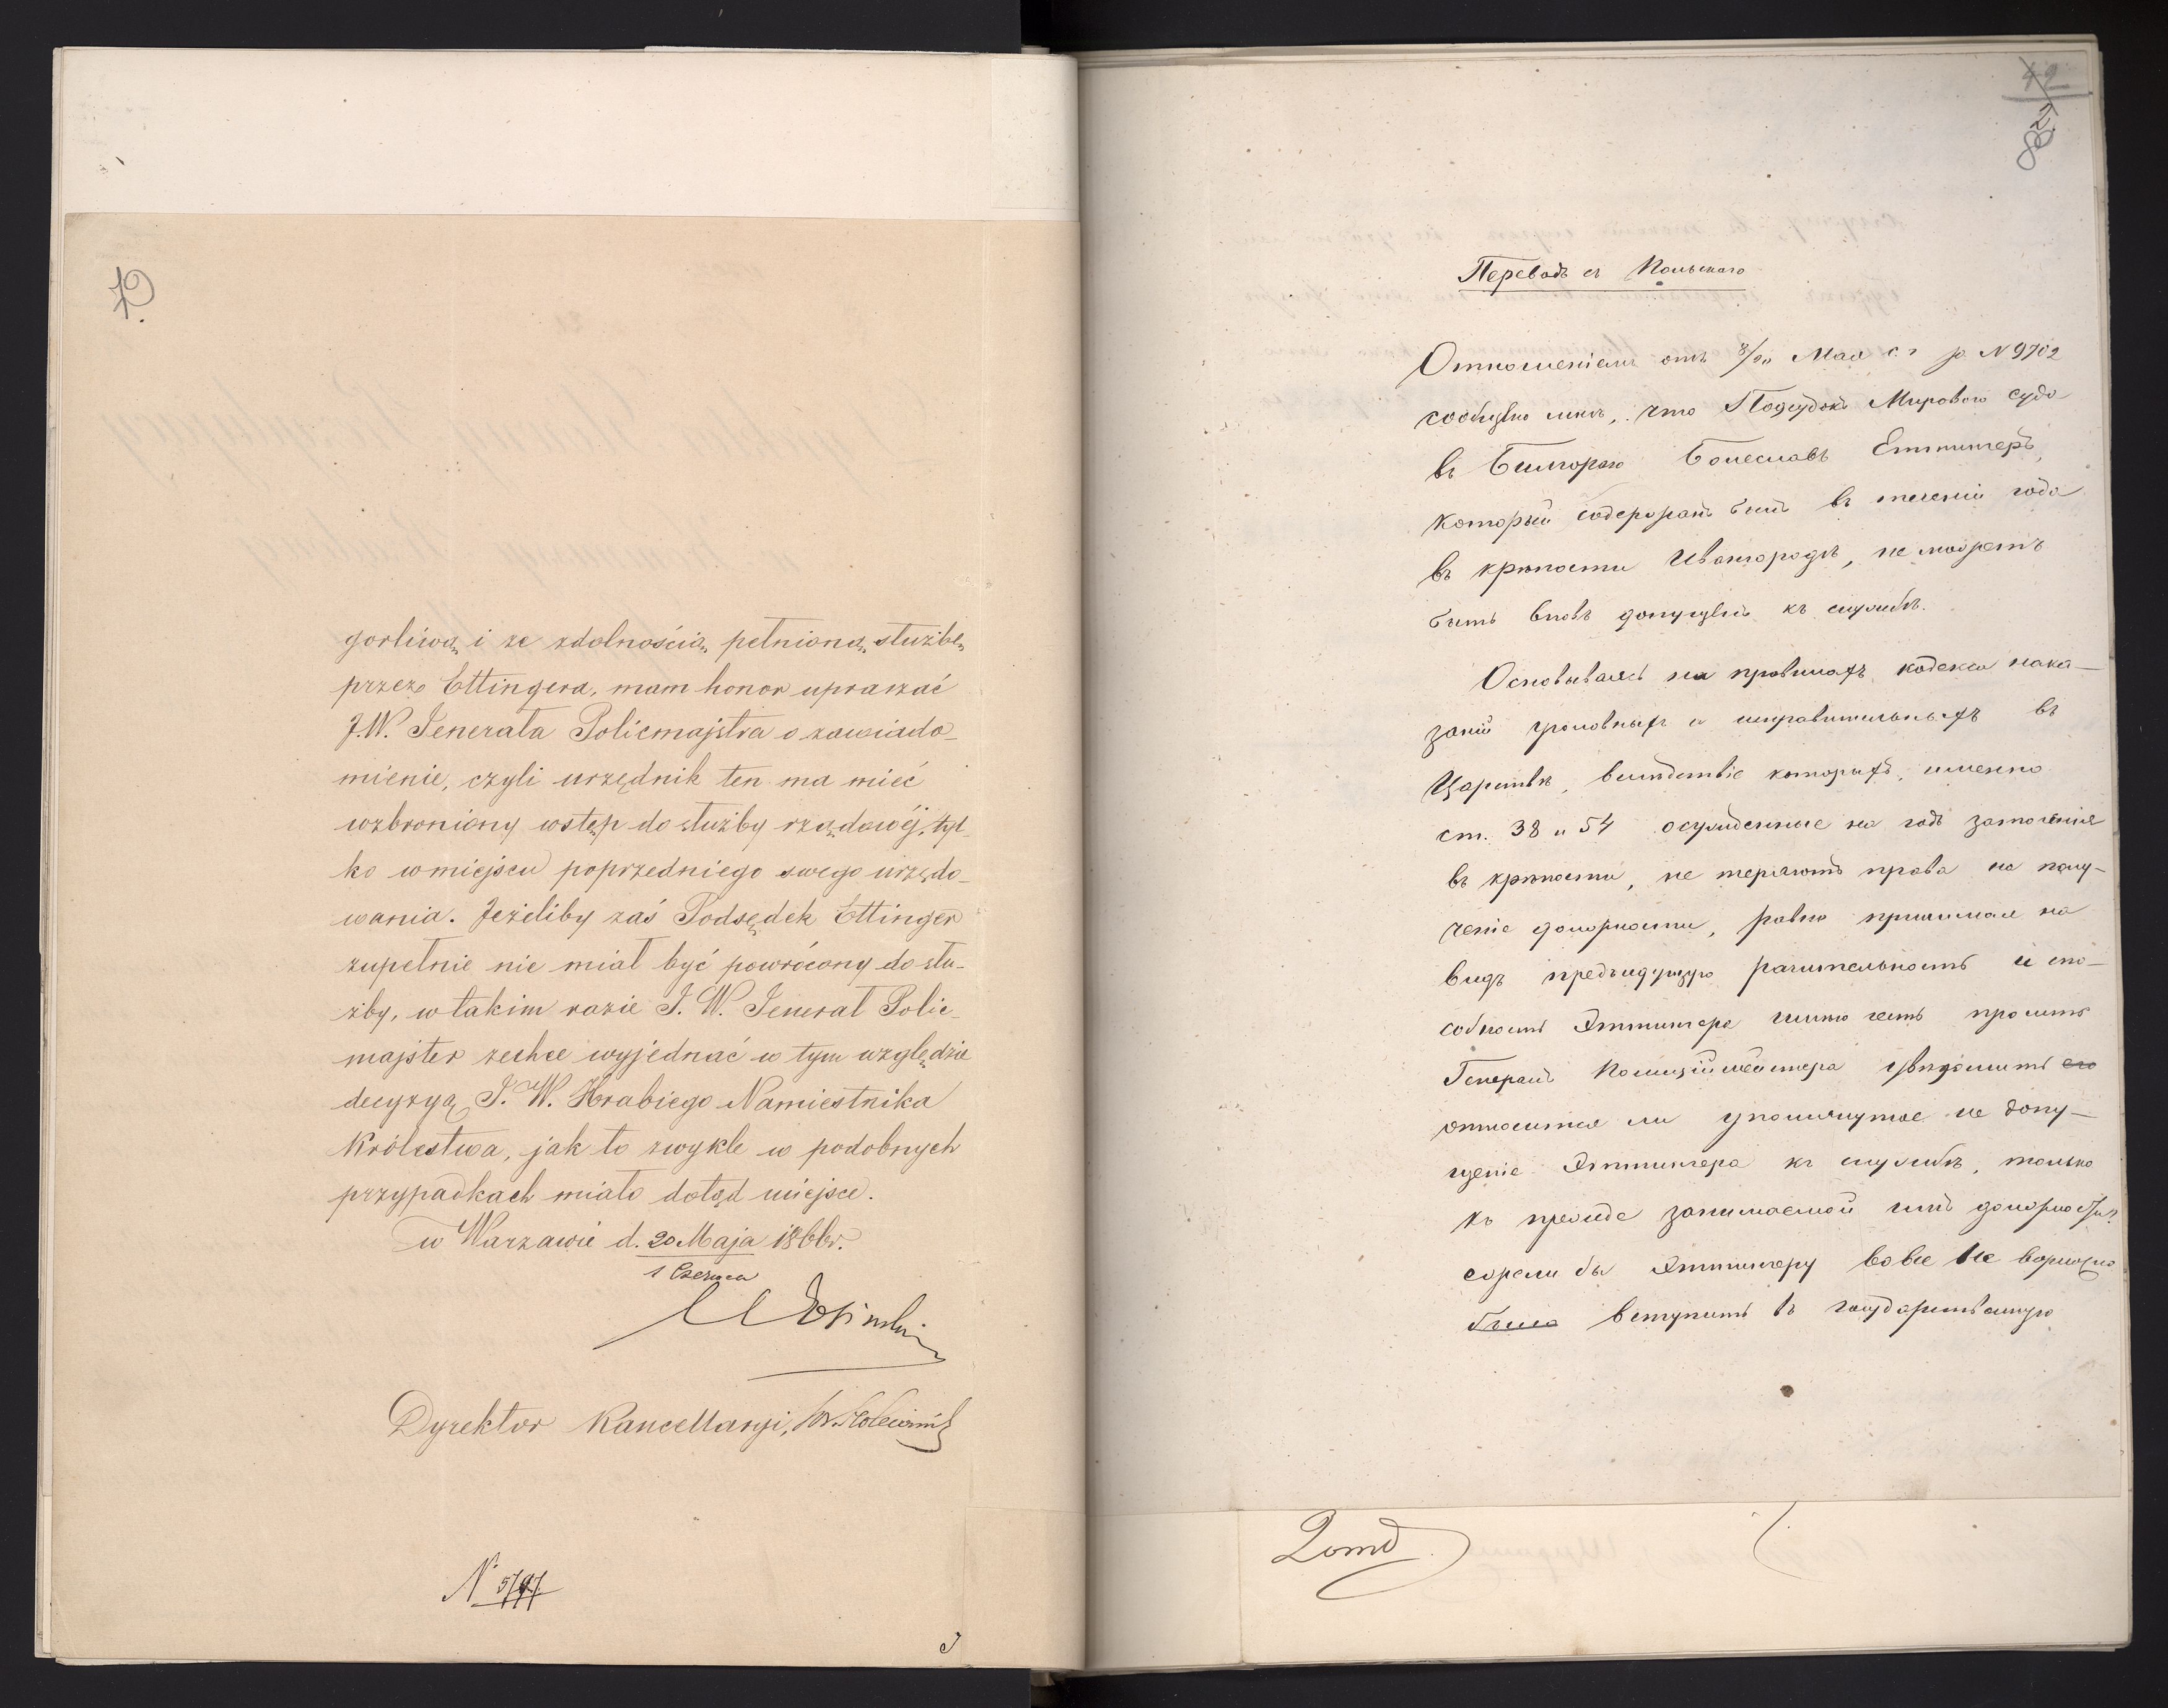 gorliwą i ze zdolnością pełnioną służbę
przez Ettingera, mam honor upraszać
J.W. Jenerała Policmajstra o zawiado-
mienie, czyli urzędnik ten ma mieć
wzbroniony wstęp do służby rządowéj, tyl-
ko w miejscu poprzedniego swego urzędo-
wania. Jeżeliby zaś Podsędek Ettinger
zupełnie nie miał być powrócony do słu-
żby, w takim razie J. W. Jenerał Polic-
majster zechce wyjednać w tym względzie
decyzyą J. W. Hrabiego Namiestnika
Królestwa, jak to zwykle w podobnych
przypadkach miało dotąd miejsce.
w Warzawie d. 20 Maja 1866 r.
1 Czerwca
Dyrektor Kancellaryi,
N 5797
42
82
Переводъ съ Польскаго
Отношеніемъ отъ 8/20 Мая с. г. за N 9702
сообщено мнѣ, что Подсудокъ Мироваго суда
въ Билгораѣ Болеславъ Еттингеръ,
который содержанъ былъ въ теченіи года
въ крѣпости Ивангородѣ, не можетъ
быть вновь допущенъ къ службѣ.
Основываясь на правилахъ кодекса нака-
заній уголовныхъ и исправительныхъ въ
Царствѣ, вслѣдствіе которыхъ, именно
ст. 38 и 54 осужденные на годъ заточенія
въ крѣпости, не теряютъ права на полу-
ченіе должности, равно принимая на
видъ предъидущую рачительность и спо-
собность Эттингера имѣю честь просить
Генералъ Полиціймейстера увѣдомить его
относится ли упомянутое не допу-
щеніе Эттингера къ службѣ, только
къ прежде занимаемой имъ должности?
если бы Эттингеру вовсе не
было вступить въ государственную